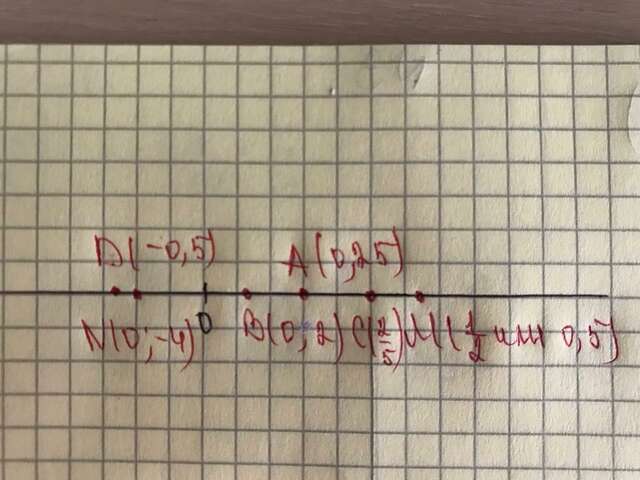 D(-0,5) A(0,25)
N(0,-4) 0 B(0,2) C(2/5) M(1/2 или 0,5)